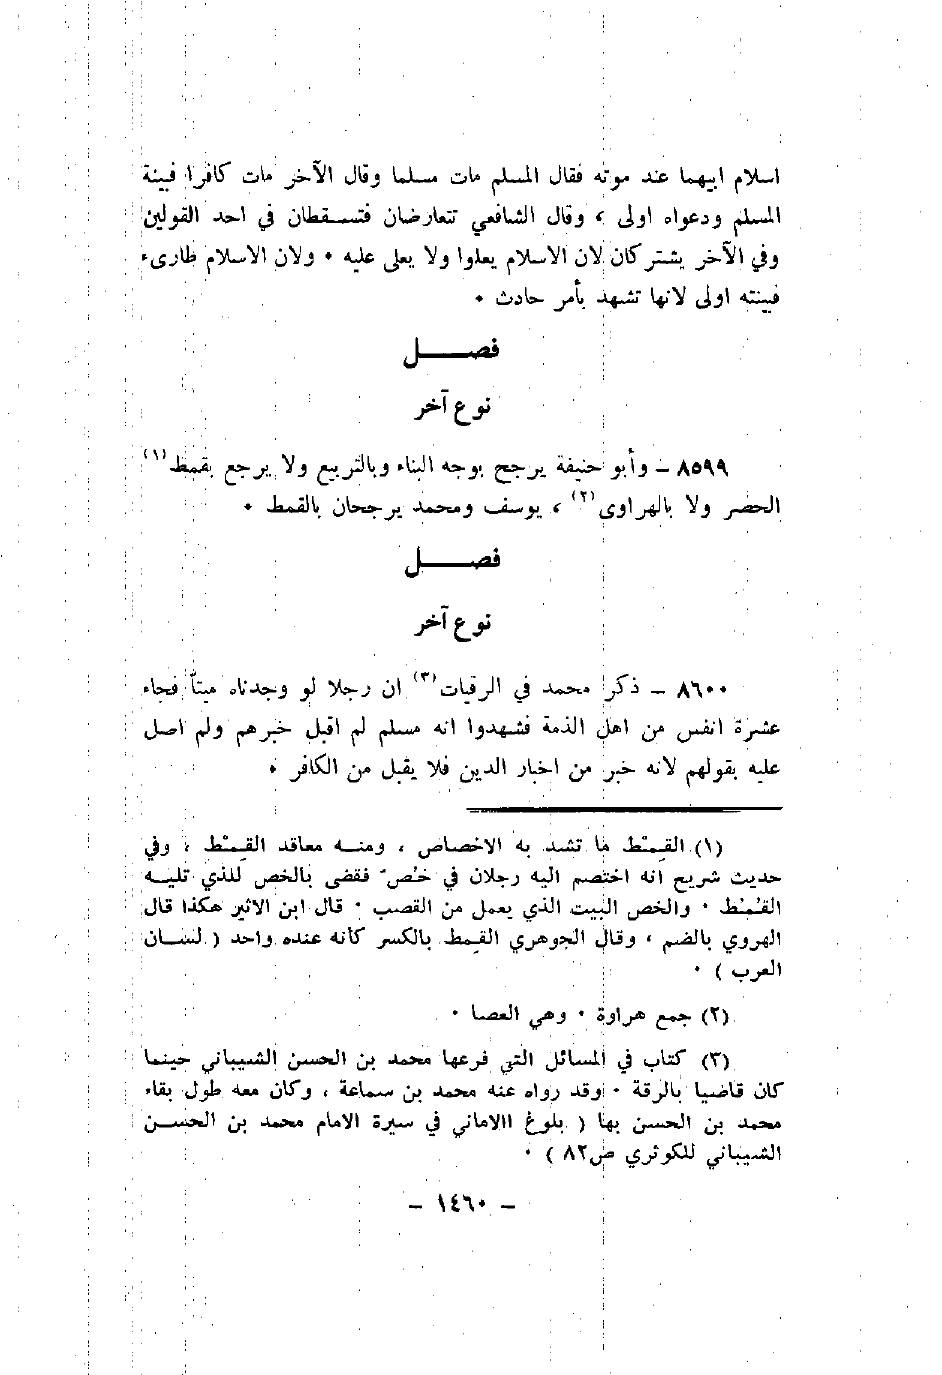 اسلام ابيهما عند موته فقال المسلم مات مسلما وقال الآخر مات كافرا فبينة
المسلم ودعواه اولى ، وقال الشافعي تتعارضان فتسـقطان في احد القولين
وفي الآخر يشتركان لان الاسلام يعلوا ولا يعلى عليه ٠ ولان الاسلام طارىء
فبينته اولى لانها تشهد بأمر حادث ٠
فصـــــل
نوع آخر
٨٥٩٩ – وأبو حنيفة يرجح بوجه البناء وبالتربيع ولا يرجع بقمط(١)
الحضر ولا بالهراوى(٢) ، يوسف ومحمد يرجحان بالقمط ٠
فصـــــل
نوع آخر
٨٦٠٠ – ذكر محمد في الرقيات(٣) ان رجلا لو وجدناه ميتاً فجاء
عشرة انفس من اهل الذمة فشهدوا انه مسلم لم اقبل خبرهم ولم اصل
عليه بقولهم لانه خبر من اخبار الدين فلا يقبل من الكافر ٠
(١) القِمْط ما تشد به الاخصاص ، ومنـه معاقد القِمْط ، وفي
حديث شريح انه اختصم اليه رجلان في خُصّ فقضى بالخص للذي تليـه
القُمُط ٠ والخص البيت الذي يعمل من القصب ٠ قال ابن الاثير هكذا قال
الهروي بالضم ، وقال الجوهري القمط بالكسر كأنه عنده واحد ( لسـان
العرب ) ٠
(٢) جمع هراوة ٠ وهي العصا ٠
(٣) كتاب في المسائل التي فرعها محمد بن الحسن الشيباني حينما
كان قاضيا بالرقة ٠ وقد رواه عنه محمد بن سماعة ، وكان معه طول بقاء
محمد بن الحسن بها ( بلوغ االاماني في سيرة الامام محمد بن الحسـن
الشيباني للكوثري ص٨٢ ) ٠
– ١٤٦٠ –